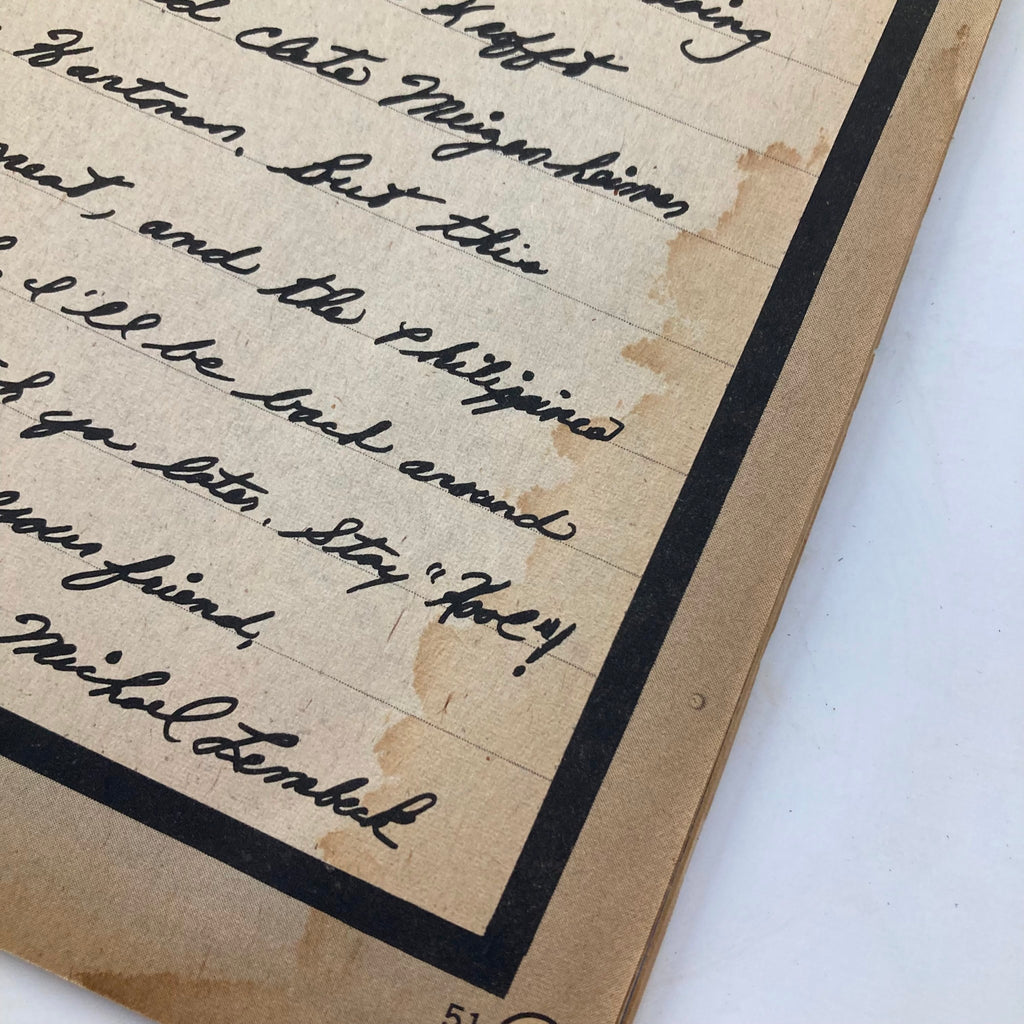 Krofft
Clete Meizenheimer
Hartman. But this
and the Philippines
I'll be back around
ya later. Stay "Kool"!
your friend,
Michael Lembeck
51